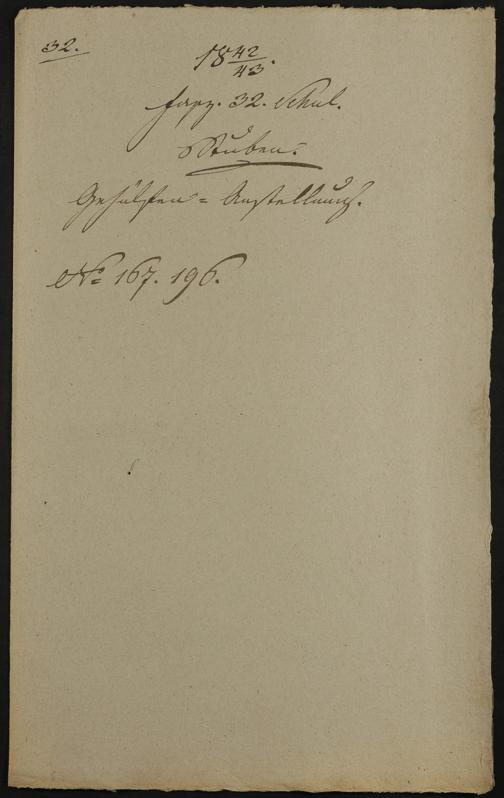 32.
18 42/43.
Fasz. 32. Schul.
Stuben.
Gehülfen = Anstellung.
No 167. 196.